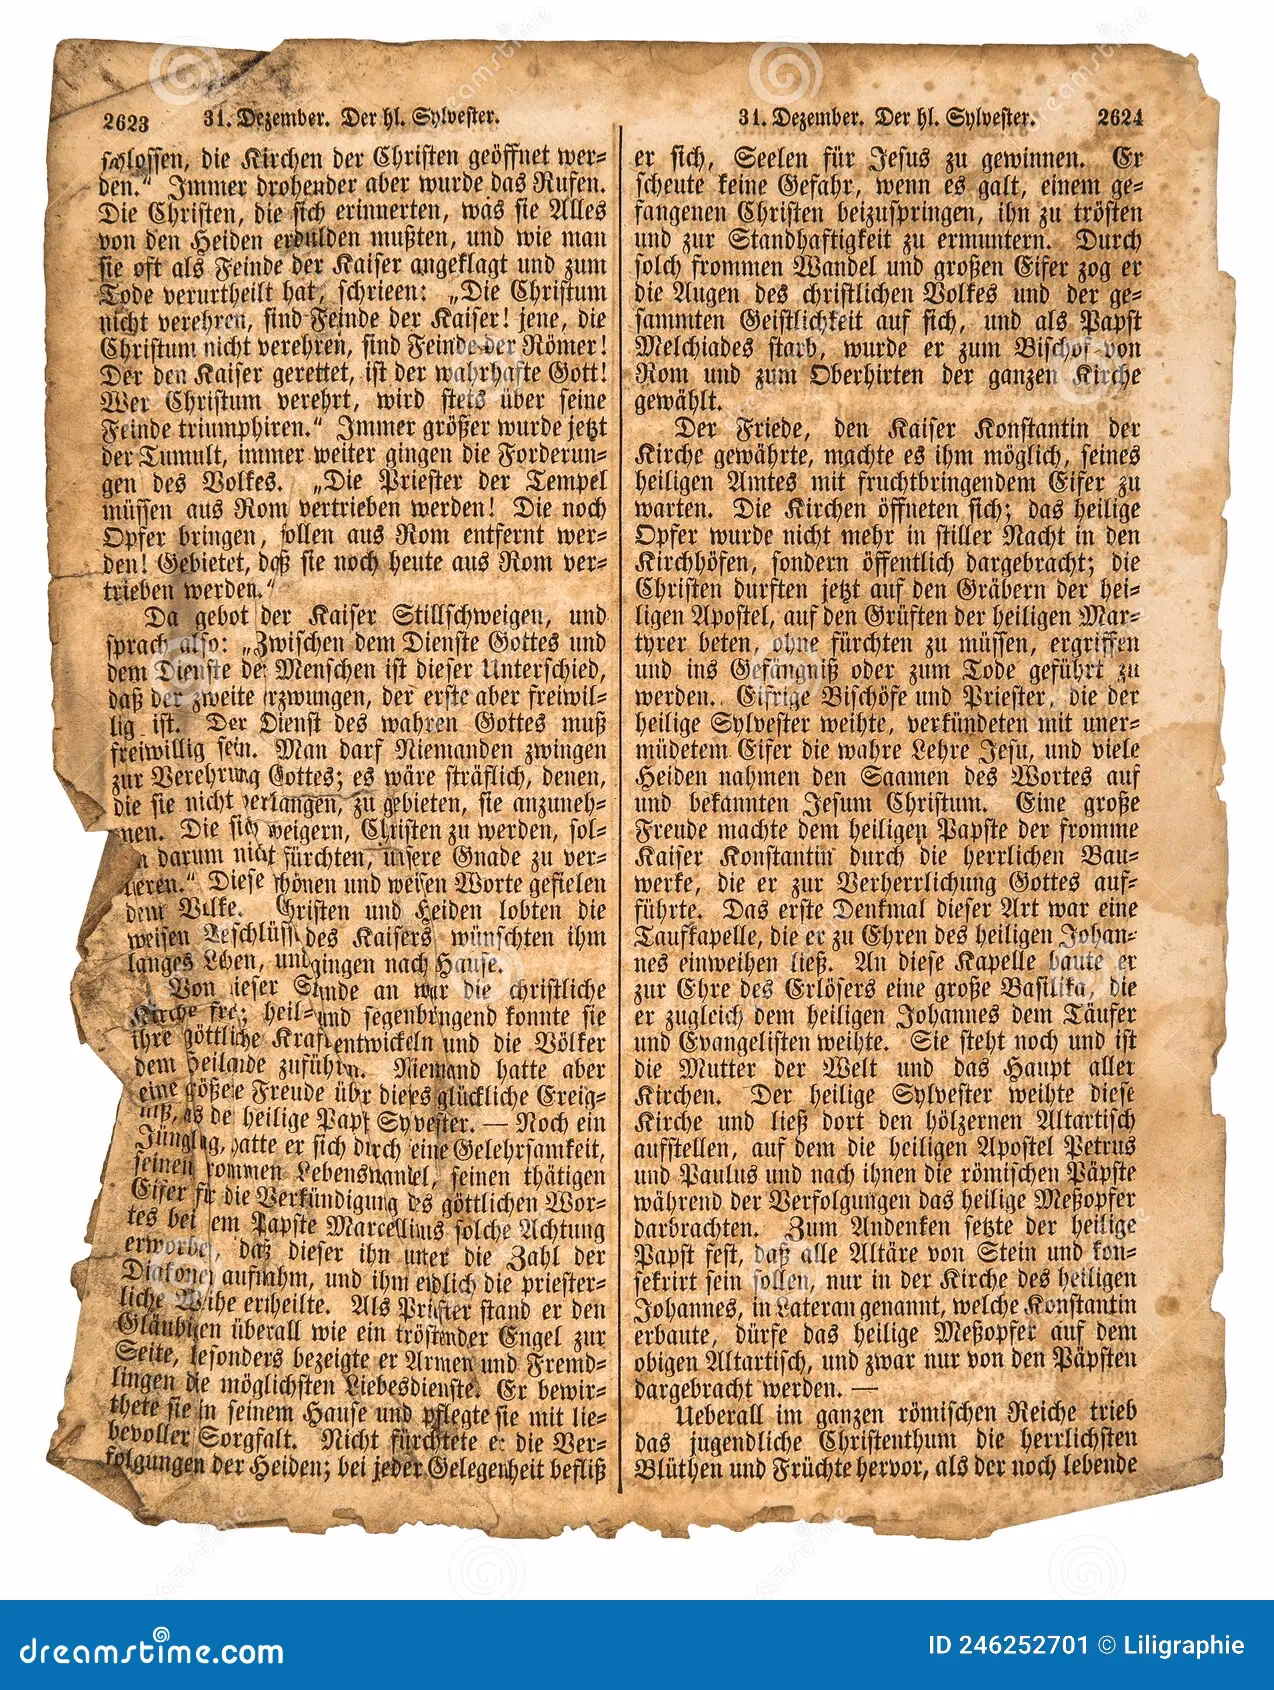 2623
31. Dezember. Der hl. Sylvester.
schlossen, die Kirchen der Christen geöffnet wer=
den.“ Immer drohender aber wurde das Rufen.
Die Christen, die sich erinnerten, was sie Alles
von den Heiden erdulden mußten, und wie man
sie oft als Feinde der Kaiser angeklagt und zum
Tode verurtheilt hat, schrieen: „Die Christum
nicht verehren, sind Feinde der Kaiser! jene, die
Christum nicht verehren, sind Feinde der Römer!
Der den Kaiser gerettet, ist der wahrhafte Gott!
Wer Christum verehrt, wird stets über seine
Feinde triumphiren.“ Immer größer wurde jetzt
der Tumult, immer weiter gingen die Forderun=
gen des Volkes. „Die Priester der Tempel
müssen aus Rom vertrieben werden! Die noch
Opfer bringen, sollen aus Rom entfernt wer=
den! Gebietet, daß sie noch heute aus Rom ver=
trieben werden.“
Da gebot der Kaiser Stillschweigen, und
sprach also: „Zwischen dem Dienste Gottes und
dem Dienste der Menschen ist dieser Unterschied,
daß der zweite erzwungen, der erste aber freiwil=
lig ist. Der Dienst des wahren Gottes muß
freiwillig sein. Man darf Niemanden zwingen
zur Verehrung Gottes; es wäre sträflich, denen,
die sie nicht verlangen, zu gebieten, sie anzuneh=
men. Die sich weigern, Christen zu werden, sol=
darum nicht fürchten, unsere Gnade zu ver=
lieren.“ Diese schönen und weisen Worte gefielen
dem Volke. Christen und Heiden lobten die
weisen Beschlüsse des Kaisers, wünschten ihm
langes Leben, und gingen nach Hause.
Von dieser Stunde an war die christliche
Kirche frei; heil= und segenbringend konnte sie
ihre göttliche Kraft entwickeln und die Völker
dem Heilande zuführen. Niemand hatte aber
eine größere Freude über dieses glückliche Ereig=
niß, als der heilige Papst Sylvester. — Noch ein
Jüngling, hatte er sich durch seine Gelehrsamkeit,
seinen frommen Lebenswandel, seinen thätigen
Eifer für die Verkündigung des göttlichen Wor=
tes bei dem Papste Marcellius solche Achtung
erworben, daß dieser ihn unter die Zahl der
Diakone aufnahm, und ihm endlich die priester=
liche Weihe ertheilte. Als Priester stand er den
Gläubigen überall wie ein tröstender Engel zur
Seite, besonders bezeigte er Armen und Fremd=
lingen die möglichsten Liebesdienste. Er bewir=
thete sie in seinem Hause und pflegte sie mit lie=
bevoller Sorgfalt. Nicht fürchtete er die Ver=
folgungen der Heiden; bei jeder Gelegenheit befliß
31. Dezember. Der hl. Sylvester.
2624
er sich, Seelen für Jesus zu gewinnen. Er
scheute keine Gefahr, wenn es galt, einem ge=
fangenen Christen beizuspringen, ihn zu trösten
und zur Standhaftigkeit zu ermuntern. Durch
solch frommen Wandel und großen Eifer zog er
die Augen des christlichen Volkes und der ge=
sammten Geistlichkeit auf sich, und als Papst
Melchiades starb, wurde er zum Bischof von
Rom und zum Oberhirten der ganzen Kirche
gewählt.
Der Friede, den Kaiser Konstantin der
Kirche gewährte, machte es ihm möglich, seines
heiligen Amtes mit fruchtbringendem Eifer zu
warten. Die Kirchen öffneten sich; das heilige
Opfer wurde nicht mehr in stiller Nacht in den
Kirchhöfen, sondern öffentlich dargebracht; die
Christen durften jetzt auf den Gräbern der hei=
ligen Apostel, auf den Grüften der heiligen Mar=
tyrer beten, ohne fürchten zu müssen, ergriffen
und ins Gefängniß oder zum Tode geführt zu
werden. Eifrige Bischöfe und Priester, die der
heilige Sylvester weihte, verkündeten mit uner=
müdetem Eifer die wahre Lehre Jesu, und viele
Heiden nahmen den Saamen des Wortes auf
und bekannten Jesum Christum. Eine große
Freude machte dem heiligen Papste der fromme
Kaiser Konstantin durch die herrlichen Bau=
werke, die er zur Verherrlichung Gottes auf=
führte. Das erste Denkmal dieser Art war eine
Taufkapelle, die er zu Ehren des heiligen Johan=
nes einweihen ließ. An diese Kapelle baute er
zur Ehre des Erlösers eine große Basilika, die
er zugleich dem heiligen Johannes dem Täufer
und Evangelisten weihte. Sie steht noch und ist
die Mutter der Welt und das Haupt aller
Kirchen. Der heilige Sylvester weihte diese
Kirche und ließ dort den hölzernen Altartisch
aufstellen, auf dem die heiligen Apostel Petrus
und Paulus und nach ihnen die römischen Päpste
während der Verfolgungen das heilige Meßopfer
darbrachten. Zum Andenken setzte der heilige
Papst fest, daß alle Altäre von Stein und kon=
sekrirt sein sollen, nur in der Kirche des heiligen
Johannes, in Lateran genannt, welche Konstantin
erbaute, dürfe das heilige Meßopfer auf dem
obigen Altartisch, und zwar nur von den Päpsten
dargebracht werden. —
Ueberall im ganzen römischen Reiche trieb
das jugendliche Christenthum die herrlichsten
Blüthen und Früchte hervor, als der noch lebende
dreamstime.com
ID 246252701 © Liligraphie